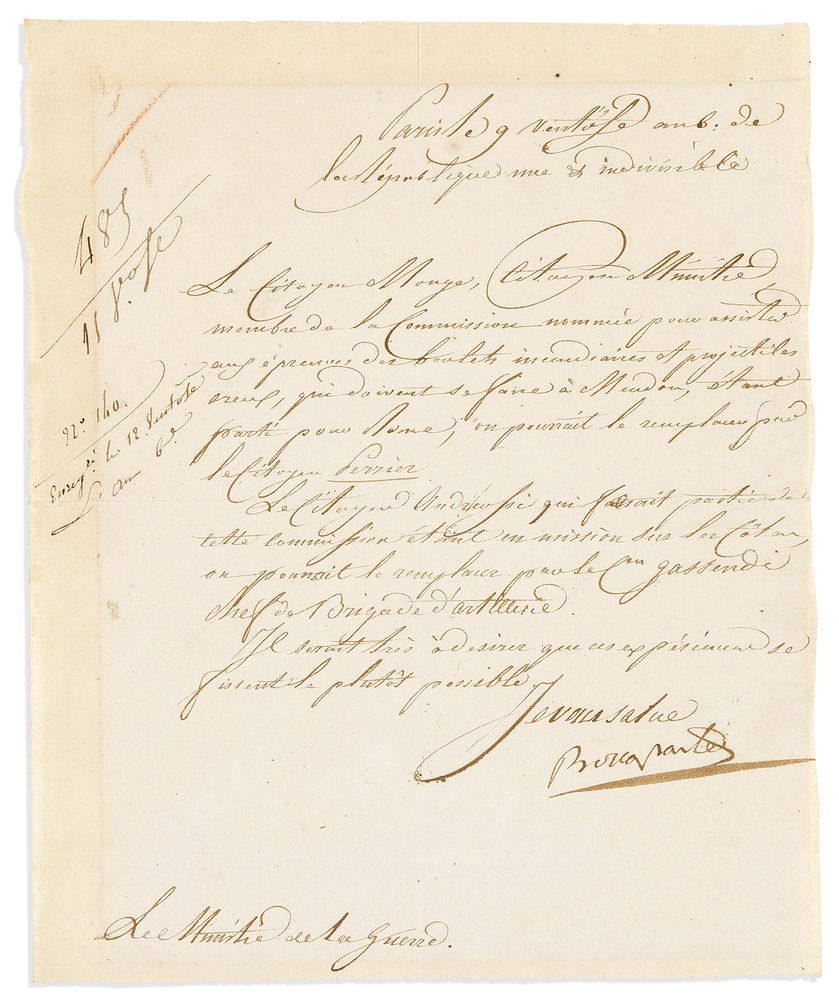 Paris le 9 ventôse an 6. de
la République une & indivisible
485
11 V.ose
Le Citoyen Monge, Citoyen Ministre,
membre de la Commission nommée pour assister
aux épreuves des boulets incendiaires et projectiles
creux, qui doivent se faire à Meudon, étant
parti pour Rome, on pourrait le remplacer par
le Citoyen Perrier.
N.o 140.
Enreg.ré le 12 Ventôse
an 6.e
Le Citoyen Andréossi qui faisait partie de
cette commission étant en mission sur les Côtes,
on pourroit le remplacer par le C.en gassendi
chef de Brigade d'artillerie.
Il serait très à desirer que ces expériences se
fissent le plutôt possible.
Je vous salue
Bonaparte
Le Ministre de la Guerre.